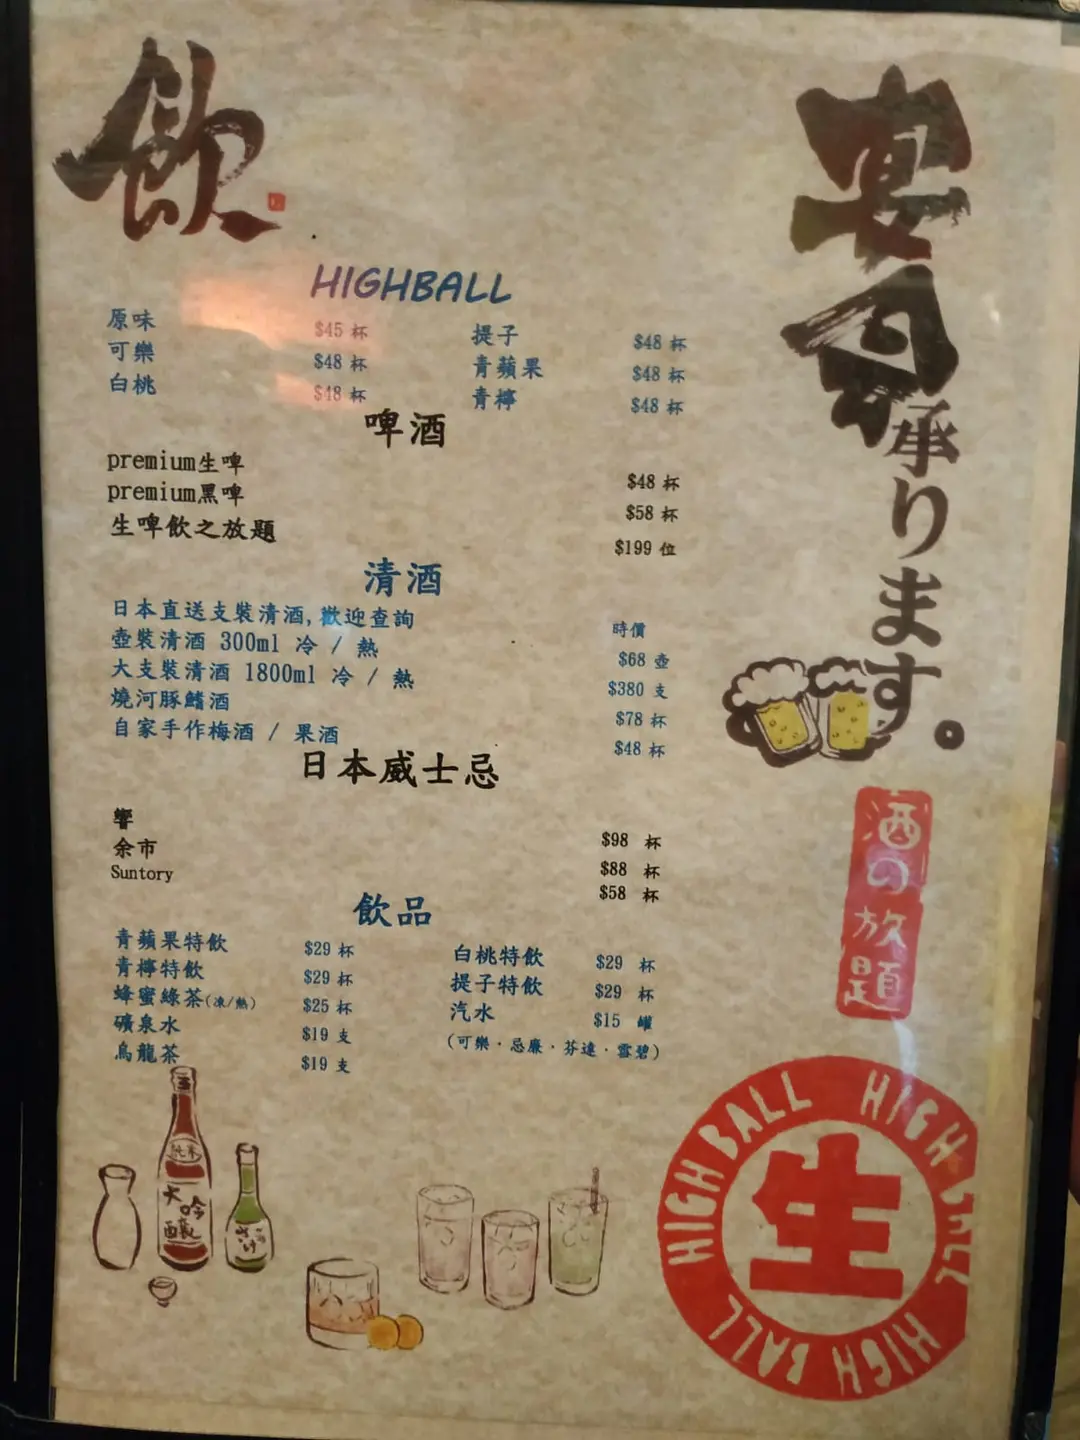 飲
HIGHBALL
原味 $45 杯 提子 $48 杯
可樂 $48 杯 青蘋果 $48 杯
白桃 $48 杯 青檸 $48 杯
啤酒
premium生啤 $48 杯
premium黑啤 $58 杯
生啤飲之放題 $199 位
清酒
日本直送支裝清酒,歡迎查詢 時價
壺裝清酒 300ml 冷 / 熱 $68 壺
大支裝清酒 1800ml 冷 / 熱 $380 支
燒河豚鰭酒 $78 杯
自家手作梅酒 / 果酒 $48 杯
日本威士忌
響 $98 杯
余市 $88 杯
Suntory $58 杯
飲品
青蘋果特飲 $29 杯 白桃特飲 $29 杯
青檸特飲 $29 杯 提子特飲 $29 杯
蜂蜜綠茶(凍/熱) $25 杯 汽水 $15 罐
礦泉水 $19 支 (可樂．忌廉．芬達．雪碧)
烏龍茶 $19 支
宴会承ります。
酒の放題
大吟醸
HIGH BALL HIGH BALL HIGH BALL
生